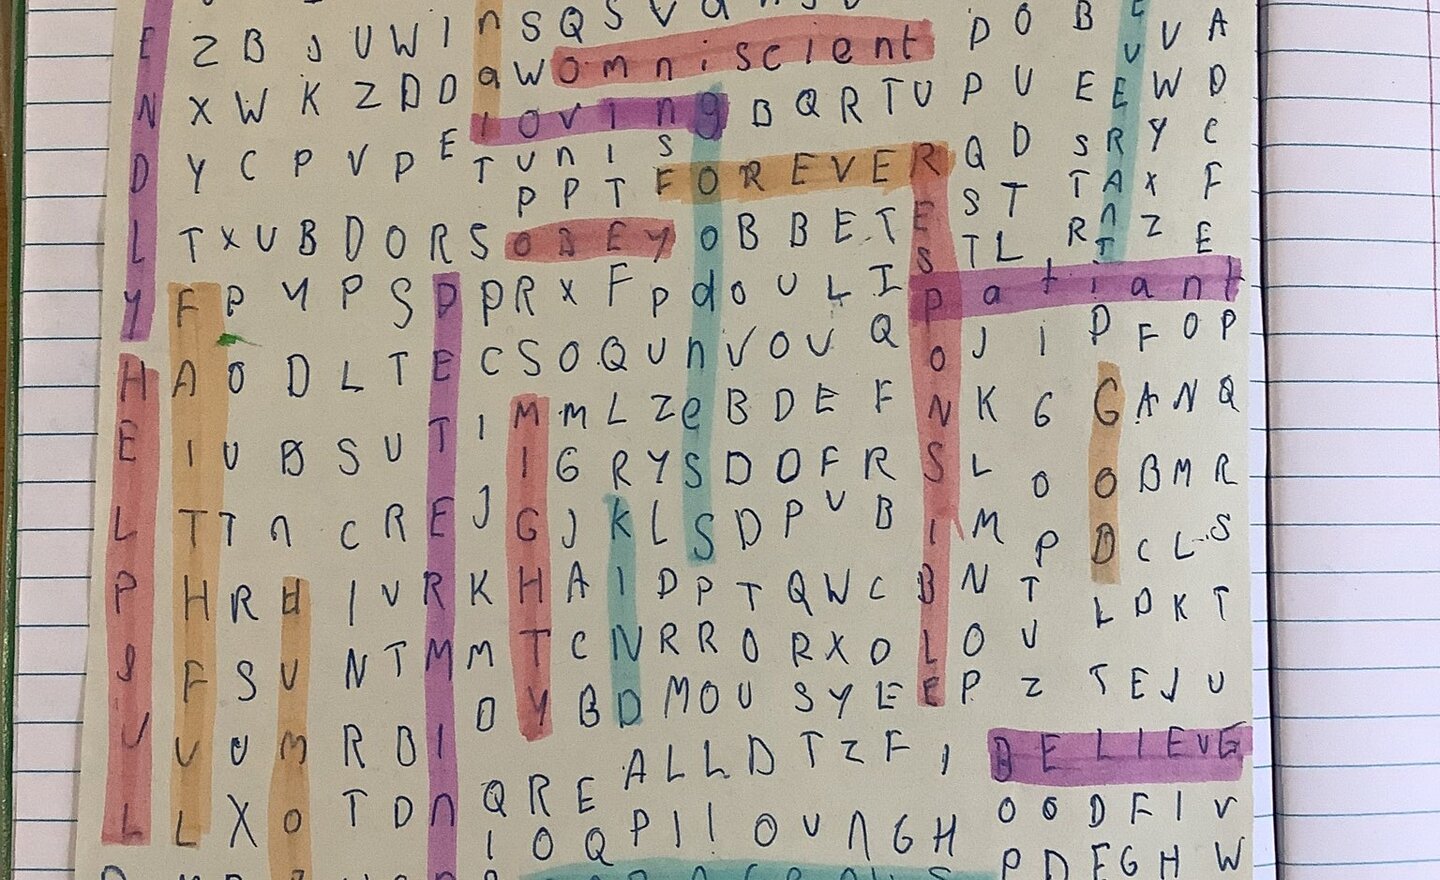 E Z B J U W I n S Q S V P O B E U A
a W O m n i s c i e n t U V
N X W K Z D D l o v i n g B Q R T U P U E E W D
D Y C P V P E T U n I S F O R E V E R Q D S R Y C
P P T S T T A X F
L T X U B D O R S O B E Y O B B E T E T L R n Z E
Y F P Y P S D P R X F P d O U L I S P a t i a n t
H A O D L T E C S O Q U n V O U Q O J I P F O P
E I U B S U T I M M L Z e B D E F N K G G A N Q
L T T n C R E J I G R Y S D O F R S L O O B M R
P H R H I V R K G J K L S D P V B I M P D C L S
S F S U N T M M H A I D P T Q W C B N T L D K T
U V U M R B I O T C N R R O R X O L O U T E J U
L L X O T D n Q Y B D M O U S Y L E E P Z
R E A L L D T Z F I B E L I E V E
I O Q P I I O U n G H O O D F I V
P D F G H W